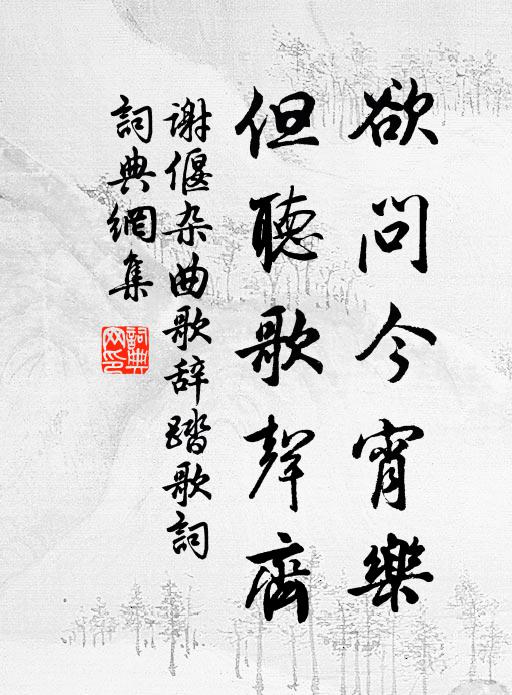 欲问今宵樂
但聽歌聲齊
谢偃杂曲歌辞踏歌詞
詞典網集
詞典网印